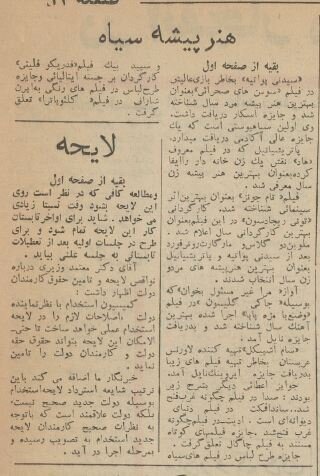 صفحه ۱۲
هنرپیشه سیاه
بقیه از صفحه اول
«سیدنی پواتیه» بخاطر بازی عالیش
در فیلم «سوسن های صحرائی» بعنوان
بهترین هنر پیشه مرد سال شناخته
شد و جایزه اسکار دریافت داشت.
وی اولین سیاهپوستی است که یک
جایزه عالی آکادمی دریافت میدارد.
پاتریشیانیل که در فیلم معروف
«هاد» نقش یک زن خانه دار را ایفا
کرده بعنوان بهترین هنر پیشه زن
سال معرفی شد.
فیلم «تام جونز» بعنوان بهترین اثر
سینمائی شناخته شد. کارگردانی
«تونی ریچاردسون» در این فیلم بعنوان
بهترین کارگردانی سال اعلام شد.
ملوین دوگلاس و مارگارت روترفورد
بعد از سیدنی پواتیه و پاتریشیانیل
بعنوان بهترین هنرپیشه های مرد و
زن سال انتخاب شدند.
آواز «مرا غیر مسئول بخوان» که
بوسیله «جاکی گلیسون» در فیلم
«وضع با مزه پاپا» اجرا شده بهترین
آهنگ سال شناخته شد و بدریافت
جایزه نایل آمد.
«سام اشپیگل» تهیه کننده لاورنس
عربستان بخاطر تهیه فیلم های زیبا
بدریافت جایزه ایروینگ نایل آمد.
جوایز اعطائی دیگر بشرح زیر
بودند: صدا در فیلم چگونه غرب فتح
شد. سانداافکت در فیلم دنیای
دیوانه ای است. ادیت در فیلم چگونه
غرب فتح شد. جایزه فیلمهای کوتاه
مستند به فیلم چاگال تعلق گرفت.
و سپید بیک فیلم «فدریکو فلینی»
کارگردان بر جسته ایتالیائی و جایزه
طرح لباس در فیلم های رنگی به ایرن
شاراف در فیلم «کلئوپاترا» تعلق
گرفت.
لایحه
بقیه از صفحه اول
و مطالعه کافی که در نظر است روی
این لایحه شود وقت نسبتا زیادی
می خواهد. شاید برای اواخر تابستان
کار این لایحه تمام شود و برای
طرح در جلسات اولیه بعد از تعطیلات
تابستانی به جلسه علنی بیاید.
آقای دکتر معتمد وزیری درباره
نواقص لایحه و تامین حقوق کارمندان
دولت اظهار داشت:
کمیسیون استخدام با نظر نماینده
دولت اصلاحات لازم را در لایحه
استخدام عملی خواهد ساخت تا حتی-
الامکان این لایحه بتواند حقوق حقه
دولت و کارمندان دولت را تامین
نماید.
خبرنگار ما اضافه می کند باین
ترتیب شایعه استرداد لایحه استخدام
بوسیله دولت جدید صحیح نیست،
بلکه دولت علاقمند است که باتوجه
به نظرات صحیح کارمندان لایحه
جدید استخدام به تصویب رسیده و
بمرحله اجرا در آید.